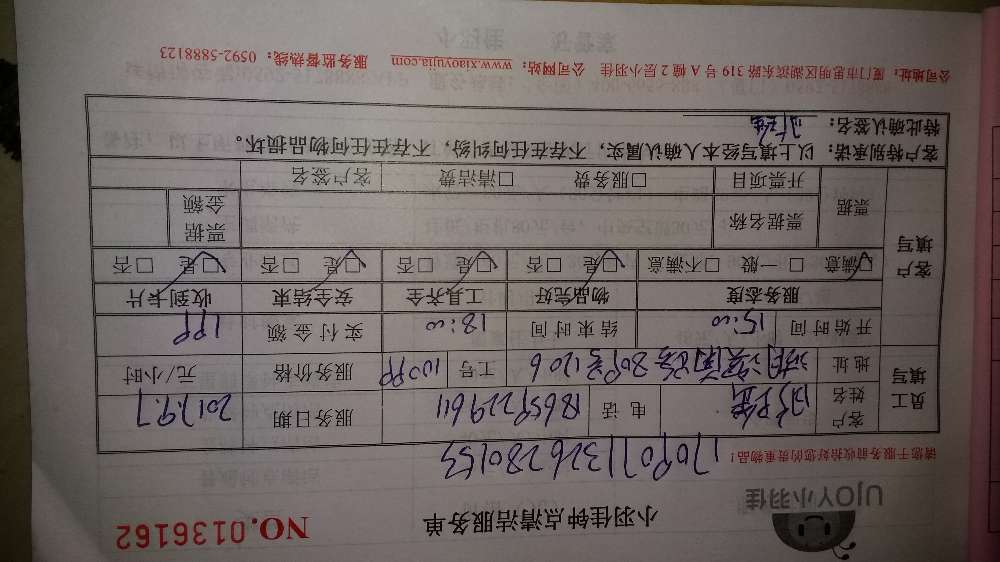 UJOY小羽佳
小羽佳钟点清洁服务单 NO.0136162
请您于服务前收拾好您的贵重物品!
1709071326280153
员工填写
客户姓名 电话 18659229611 服务日期 2017.9.7
地址 工号 服务价格 元/小时
开始时间 15:00 结束时间 18:00 实付金额 199
客户填写
服务态度 物品完好 工具齐全 安全结束 收到卡片
□满意 □一般 □不满意 □是 □否 □是 □否 □是 □否 □是 □否
票据 票据名称 票据金额
开票项目 □服务费 □清洁费 客户签名
客户特别承诺:以上填写经本人确认属实,不存在任何纠纷,不存在任何物品损坏。
特此确认签名:
公司地址:厦门市思明区湖滨东路 319 号 A 幢 2 层小羽佳 公司网站:www.xiaoyujia.com 服务监督热线:0592-5888123